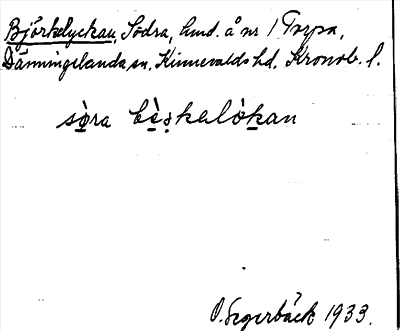 Björkelyckan, Södra, hmd. å nr 1 Torpa,
Dänningelanda sn. Kinnevalds hd. Kronob. l.
sọ̀ra bè̤ṣkelò̤kan
O. Segerbäck 1933.